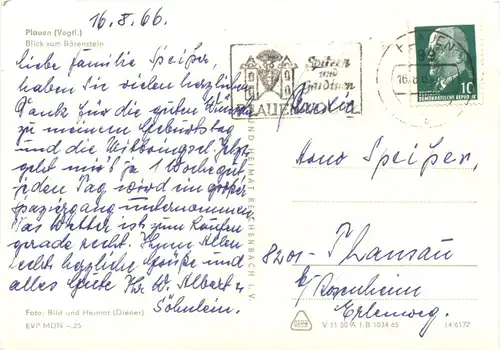 16.8.66.
Plauen (Vogtl.)
Blick vom Bärenstein
Liebe Familie Speißer,
haben Sie vielen herzlichen
Dank für die guten Wünsche
zu meinem Geburtstag
und die Jetzt
geht mir's ja 1 Woche gut
jeden Tag wird ein großer
Spaziergang unternommen
Das Wetter ist zum Laufen
gerade recht. Ihnen Allen
recht herzliche Grüße und
alles Gute Ihr W. Albert u.
Söhnlein.
Foto: Bild und Heimat (Diener)
EVP MDN -,25
BILD UND HEIMAT REICHENBACH I. V.
Spitzen
und
Gardinen
PLAUEN
PLAUEN
16.8.
10
DEUTSCHE DEMOKRATISCHE REPUBLIK
Familie
Speißer,
8201 - Thansau
b/ Rosenheim
Erlenweg.
V 11 50 A 1 B 1034 65
14 6172